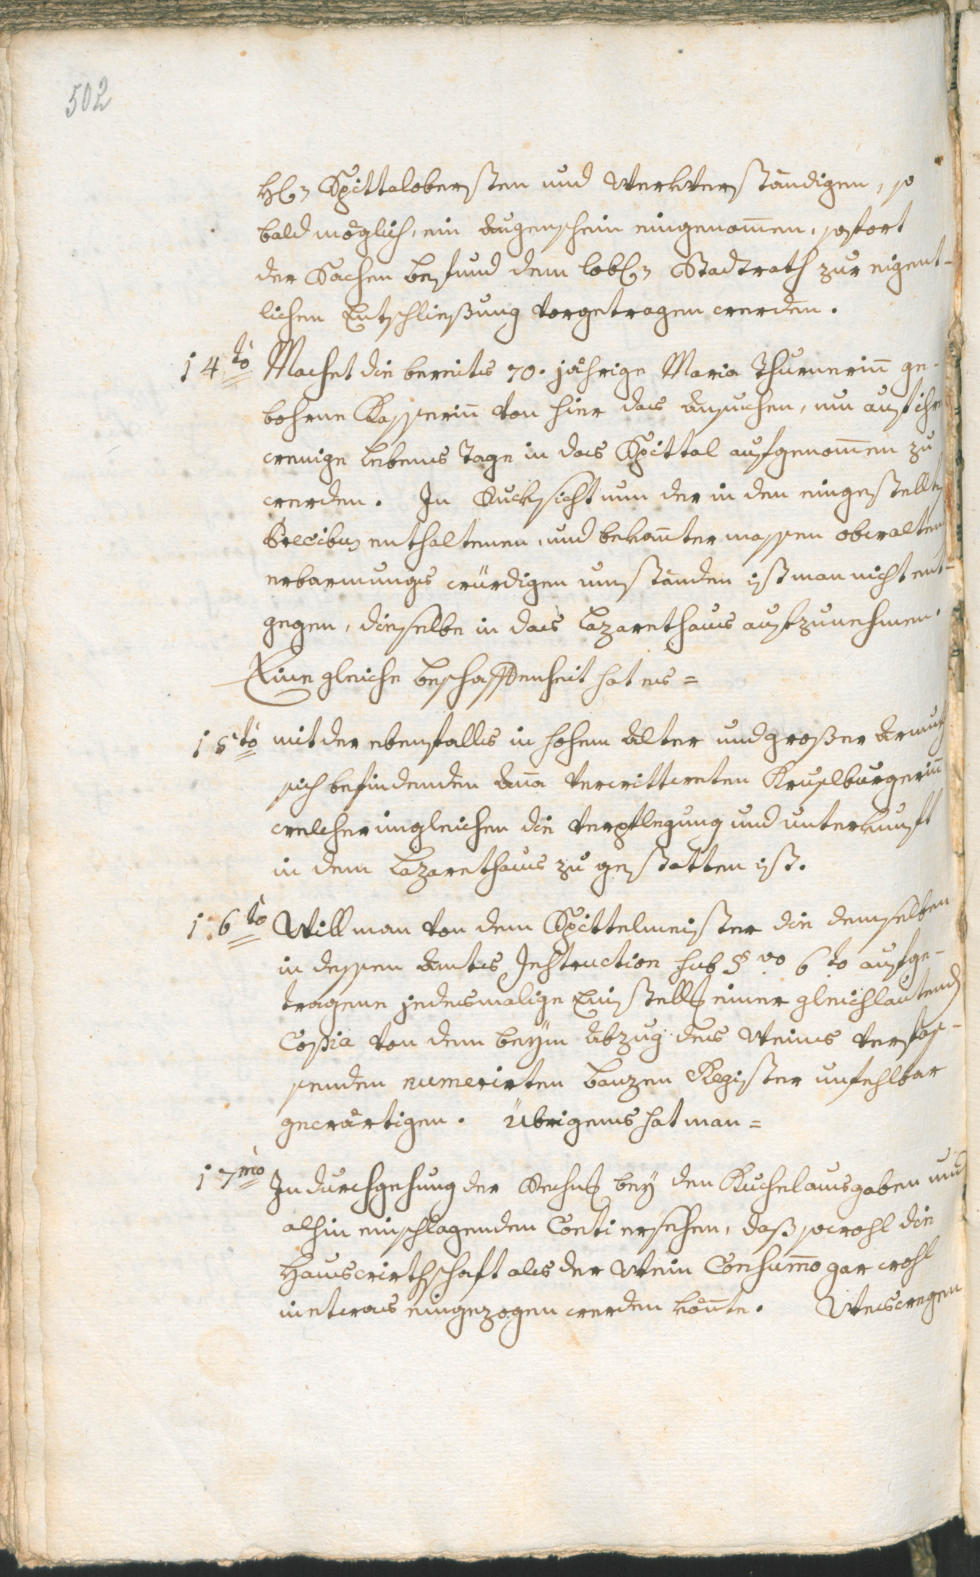 502
H[er]n Spittalobersten und Werkverständigen, so
bald möglich, ein Augenschein eingenom̄en, sofort
der Sachen Befund dem lobl[ichen] Stadtrath zur eigent-
lichen Entschließung vorgetragen werden.
14.to Machet die bereits 70. jährige Maria Thurnerin̄ ge-
bohrne Kasserin̄ von hier das Ansuchen, um auf ihre
wenige Lebens Tage in das Spittal aufgenom̄en zu
werden. In Rucksicht nun der in den eingestellten
Precibus enthaltenen, und bekan̄ter massen obwalten
erbarmungs würdigen umständen ist man nicht ent-
gegen, dieselbe in das Lazarethaus aufzunehmen.
Eine gleiche Beschaffenheit hat es =
15to mit der ebenfalls in hohem Alter und großer Armuth
sich befindenden An̄a verwittweten Kruslburgerin̄
welcher ingleichen die Verpflegung und Unterkunft
in dem Lazarethaus zu gestatten ist.
16to Will man von dem Spittelmeister die demselben
in dessen Amts Instruction sub §vo 6to aufge-
tragene jedesmalige Einstellung einer gleichlautenden
Copia von dem beÿm Abzug des Weins verfas-
senden numerirten Banzen Register unfehlbar
gewärtigen. Übrigens hat man =
17mo In durchgehung der Rechnung beÿ den Kuchelausgaben und
alhin einschlagenden Conti ersehen, daß sowohl die
Hauswirthschaft als der Wein Consum̄o gar wohl
in etwas eingezogen werden kön̄te. Weswegen